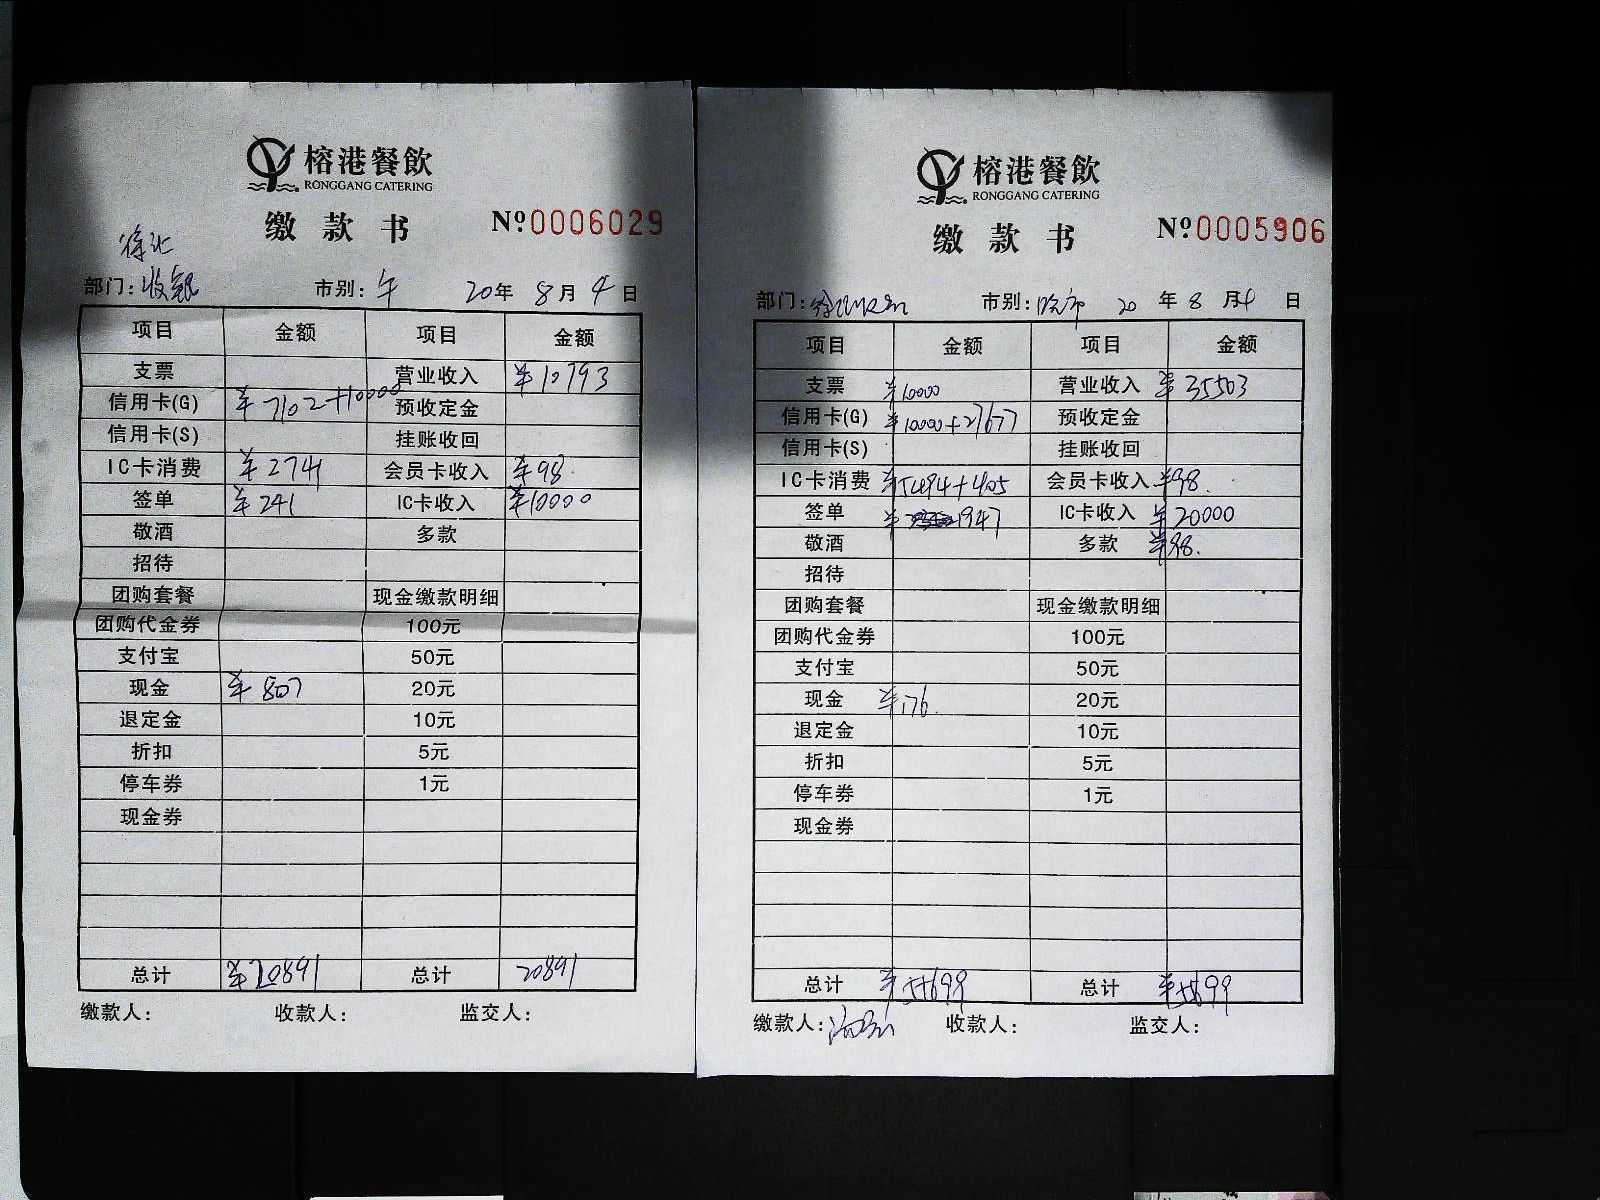 榕港餐飲
RONGGANG CATERING
缴款书 №0006029
徐汇
部门:收银 市别:午 20年8月4日
项目 金额 项目 金额
支票 营业收入 ¥10793
信用卡(G) ¥7102+10000 预收定金
信用卡(S) 挂账收回
IC卡消费 ¥2741 会员卡收入 ¥98.
签单 ¥241 IC卡收入 ¥10000
敬酒 多款
招待
团购套餐 现金缴款明细
团购代金券 100元
支付宝 50元
现金 ¥807 20元
退定金 10元
折扣 5元
停车券 1元
现金券
总计 ¥20891 总计 20891
缴款人: 收款人: 监交人:
榕港餐飲
RONGGANG CATERING
缴款书 №0005906
部门:徐汇收银 市别:晚市 20年8月4日
项目 金额 项目 金额
支票 ¥10000 营业收入 ¥35503
信用卡(G) ¥10000+27677 预收定金
信用卡(S) 挂账收回
IC卡消费 ¥5494+405 会员卡收入 ¥98.
签单 ¥1947 IC卡收入 ¥20000
敬酒 多款 ¥98.
招待
团购套餐 现金缴款明细
团购代金券 100元
支付宝 50元
现金 ¥176. 20元
退定金 10元
折扣 5元
停车券 1元
现金券
总计 ¥55699 总计 ¥55699
缴款人: 收款人: 监交人: